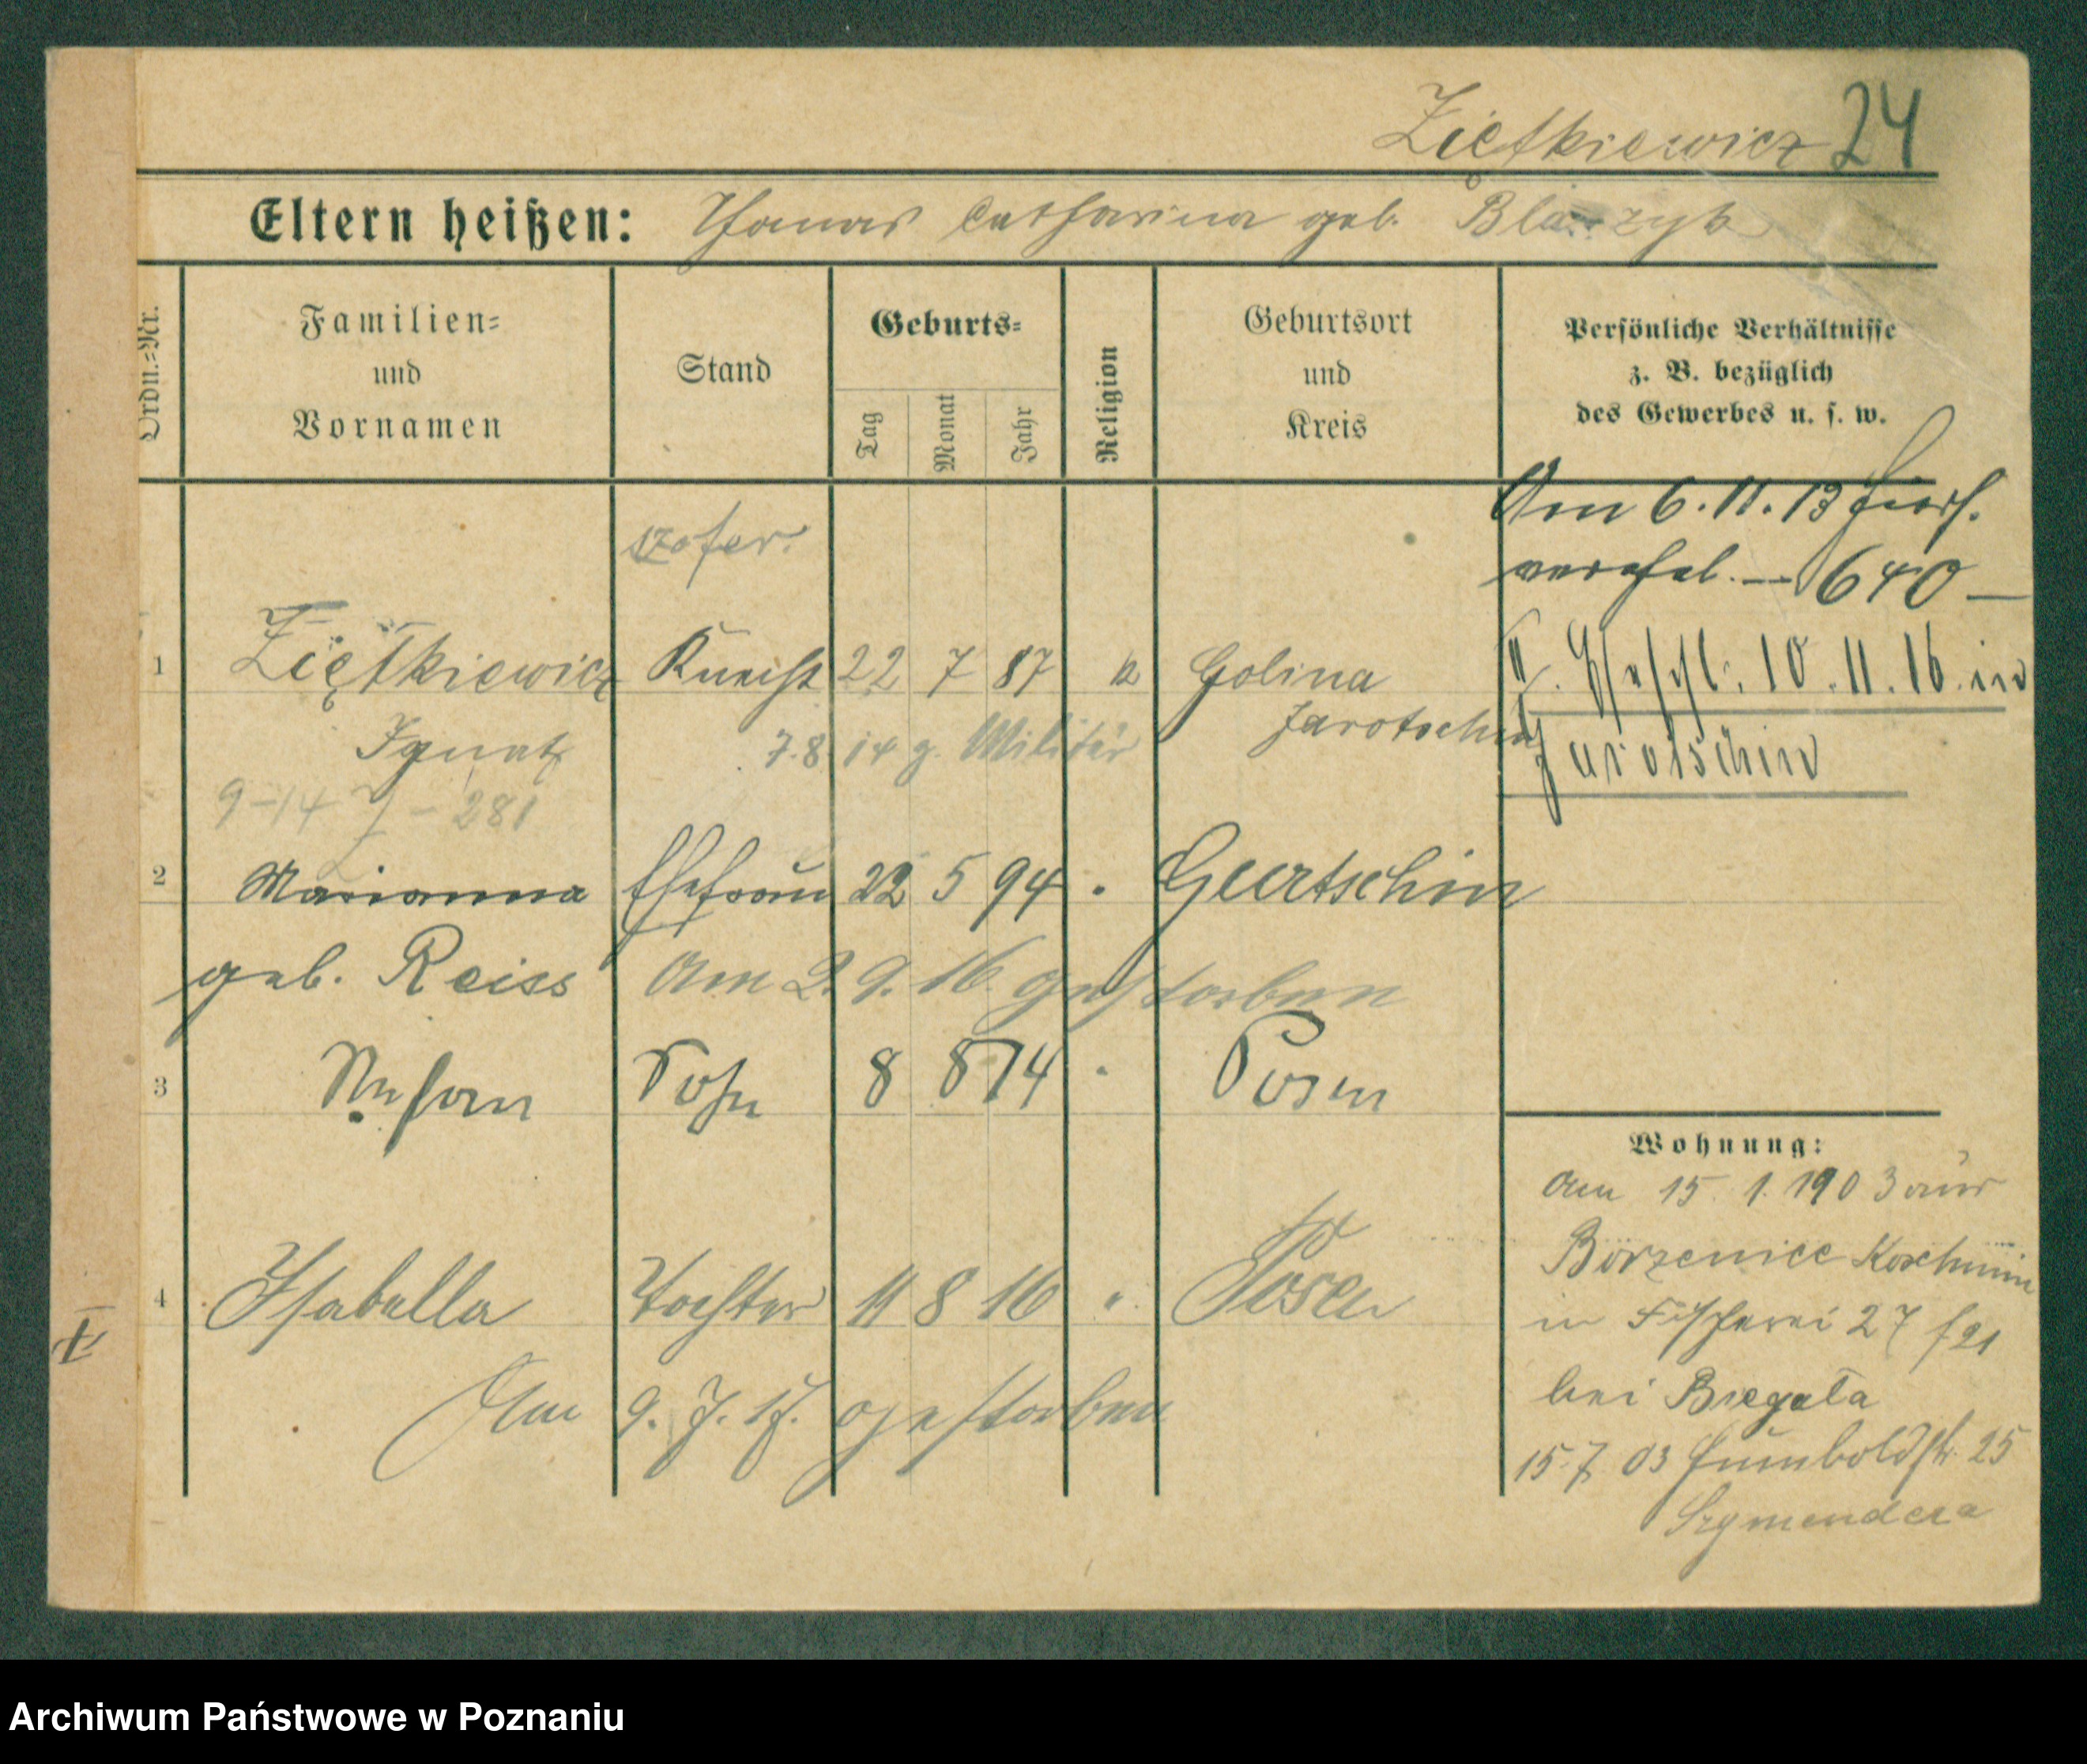 Zietkiewicz 24
Eltern heißen: Thomas Catharina geb. Blaszyk
Ordn.=Nr.
Familien=
und
Vornamen
Stand
Geburts=
Tag
Monat
Jahr
Religion
Geburtsort
und
Kreis
Persönliche Verhältnisse
z. B. bezüglich
des Gewerbes u. s. w.
Am 6. 11. 13 hiers.
verehel. — 640 —
1 Ziętkiewicz Knecht 22 7 87 k Golina
Jarotschin
II. Eheschl. 10. 11. 16 in
Jarotschin
Ignatz 7. 8. 14 z. Militär
9-14 - 281
2 Marianna Ehefrau 22 5 94 " Geertschin
geb. Reiss Am 2. 9. 16. gestorben
3 Sohn 8 8 14 " Posen
Wohnung:
Am 15. 1. 1903 aus
Borzenice Koschmin
in Fischerei 27
bei Biegala
15. 7. 03 Humboldstr. 25
Szymendera
4 Isabella Tochter 11 8 16 " Posen
Am 9. 7. 17. gestorben
Archiwum Państwowe w Poznaniu